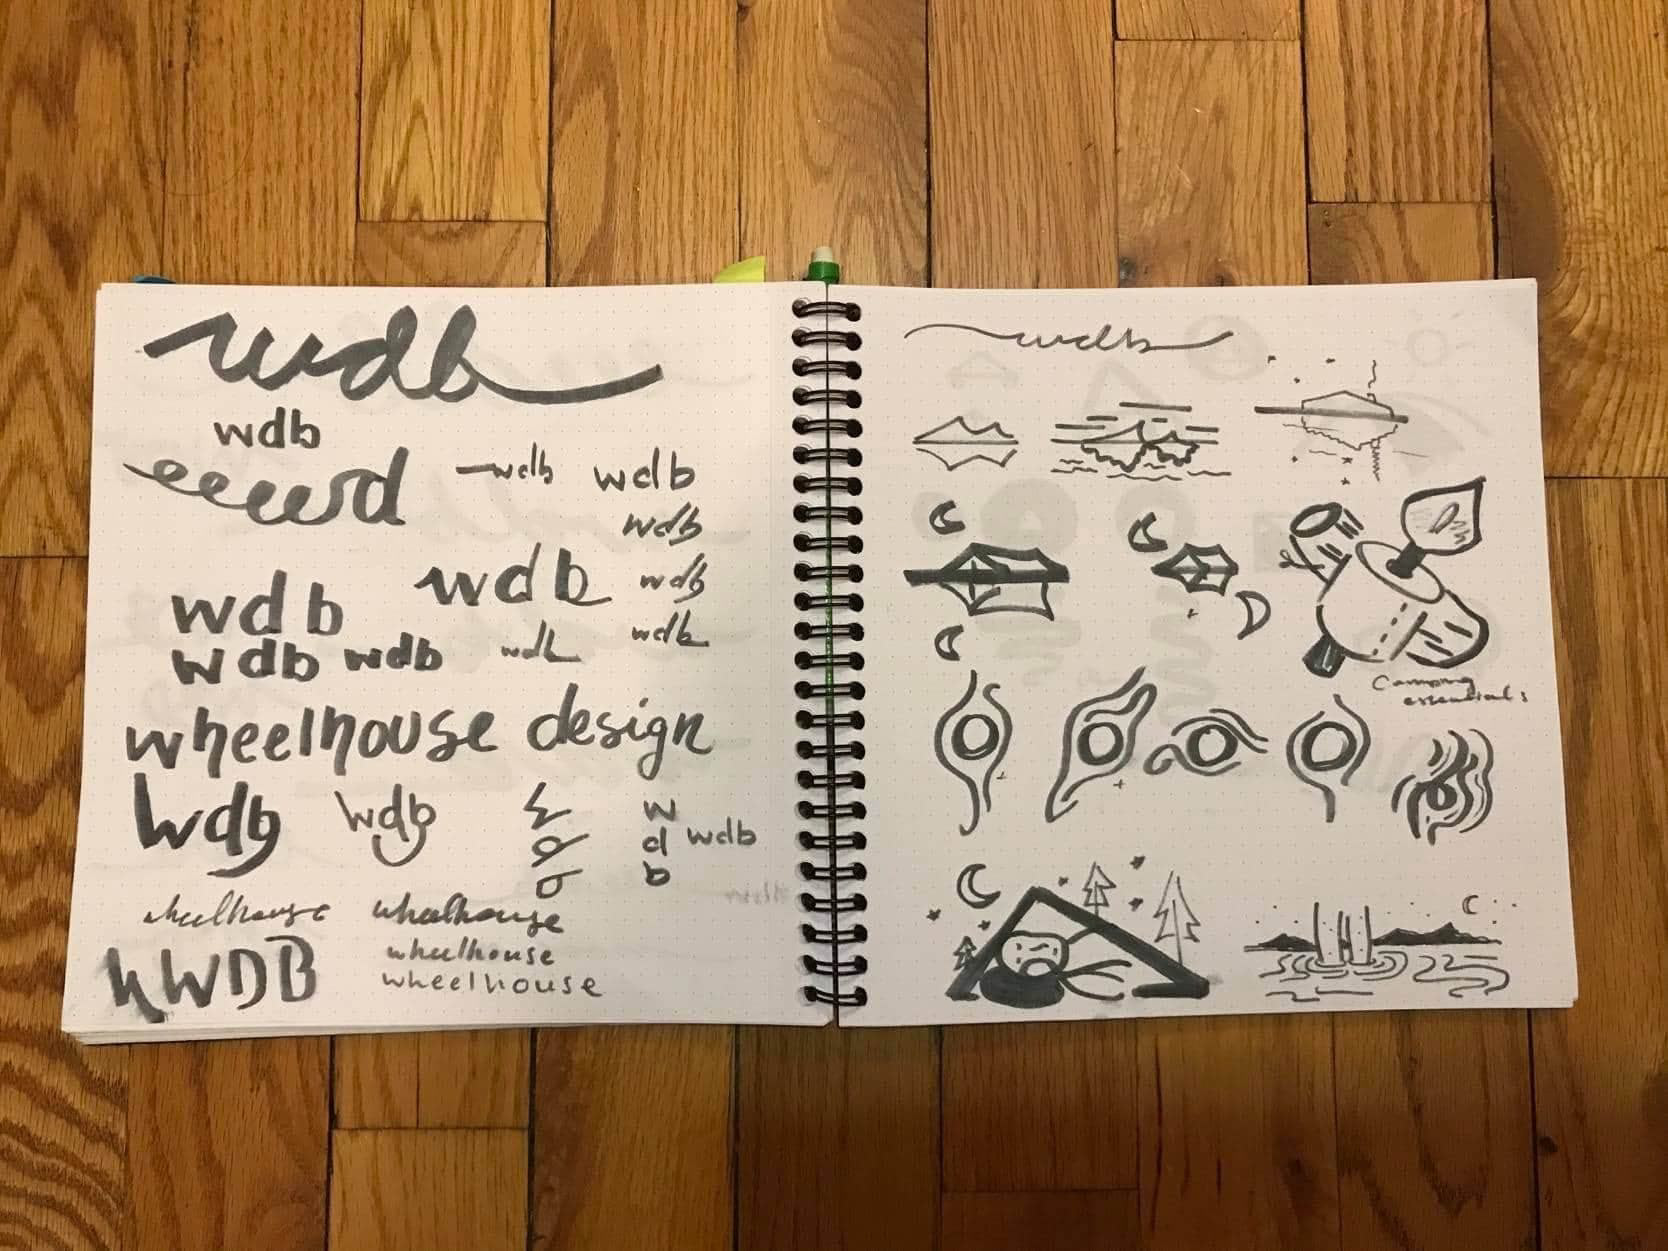 wdb
wdb
eeewd
wdb wdb
wdb
wdb wdb wdb
wdb wdb wdb wdb
wheelhouse design
wdb wdb w w
d d wdb
b b
wheelhouse wheelhouse
wheelhouse
WDB wheelhouse
wdb
Camping
essentials